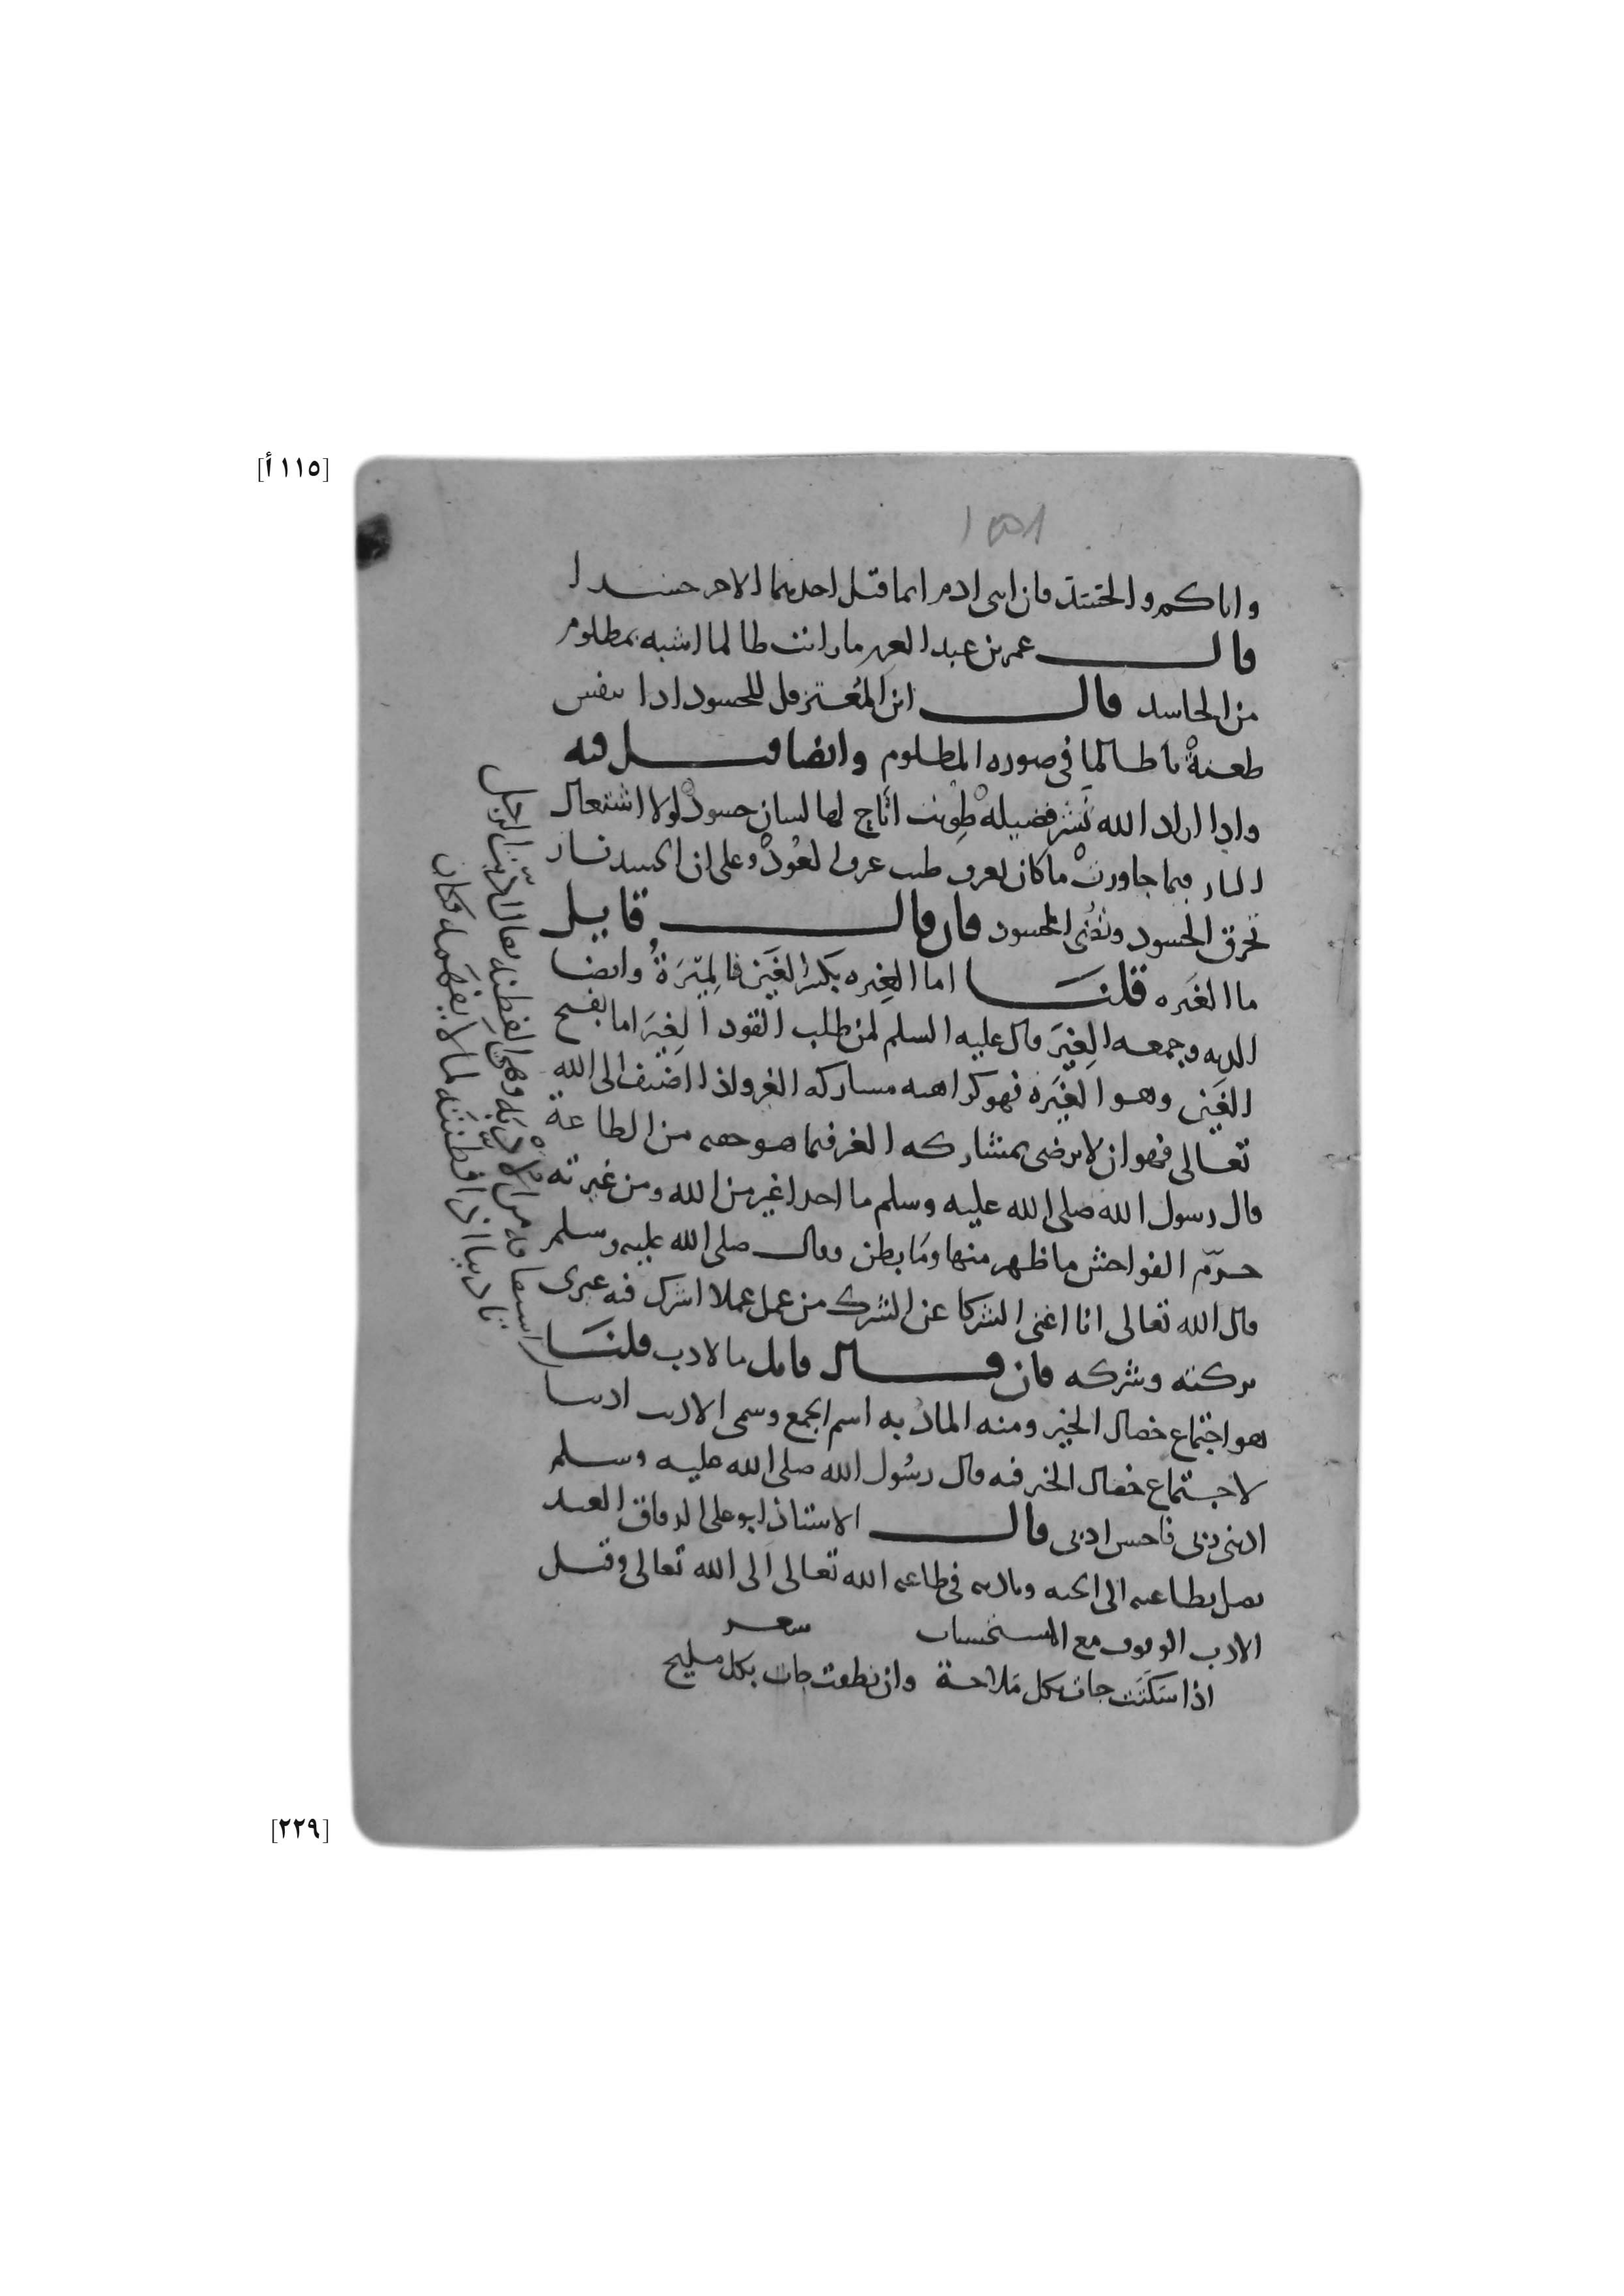 [١١٥ أ]
واياكم والحسد فان ابنى ادم انما قتل احدهما الاخر حسدا
قال عمر بن عبد العزيز ما رايت ظالما اشبه بمظلوم
من الحاسد قال ابن المعتز قل للحسود اذا تنفس
طعنة يا ظالما فى صوره المظلوم وايضا قيل فيه
واذا اراد الله نشر فضيلة طويت اتاح لها لسان حسود لولا اشتعال
النار فيما جاورت ما كان يعرف طيب عرف العود وعلى ان الحسد نار
تحرق الحسود وتضى المحسود فان قال قايل
ما الغيره قلنا اما الغِيره بكسر الغين فالمِيرَةُ وايضا
الديه وجمعه الغِيَر قال عليه السلم لمن طلب القود الغِيَر اما بفتح
الغين وهو الغيره فهو كراهيه مشاركه الغير واذا اضيف الى الله
تعالى فهو ان لا يرضى بمشاركه الغير فيما هو حقه من الطاعة
قال رسول الله صلى الله عليه وسلم ما احد اغير من الله ومن غيرته
حرّم الفواحش ما ظهر منها وما بطن وقال صلى الله عليه وسلم
قال الله تعالى انا اغنى الشركا عن الشرك من عمل عملا اشرك فيه غيرى
تركته وشركه فان قال قايل ما الادب قلنا
هو اجتماع خصال الخير ومنه المادبه اسم الجمع وسمى الاديب اديبا
لاجتماع خصال الخير فيه قال رسول الله صلى الله عليه وسلم
ادبنى ربى فاحسن ادبى قال الاستاذ ابو على الدقاق العبد
يصل بطاعته الى الجنه وبادبه فى طاعه الله تعالى الى الله تعالى وقيل
الادب الوقوف مع المستحسنات شعر
اذا سكتت جات بكل ملاحة وان نطقت جات بكل مليح
اشتقاقه من الابه وهى الفطنه يقال ابّنت الرجل
تاديبا اذا فطنته لما لا يفهمه فكان
[٢٢٩]